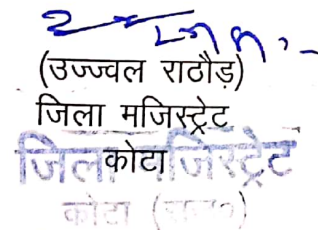 (उज्ज्वल राठौड़)
जिला मजिस्ट्रेट
कोटा
जिला मजिस्ट्रेट
कोटा (राज०)